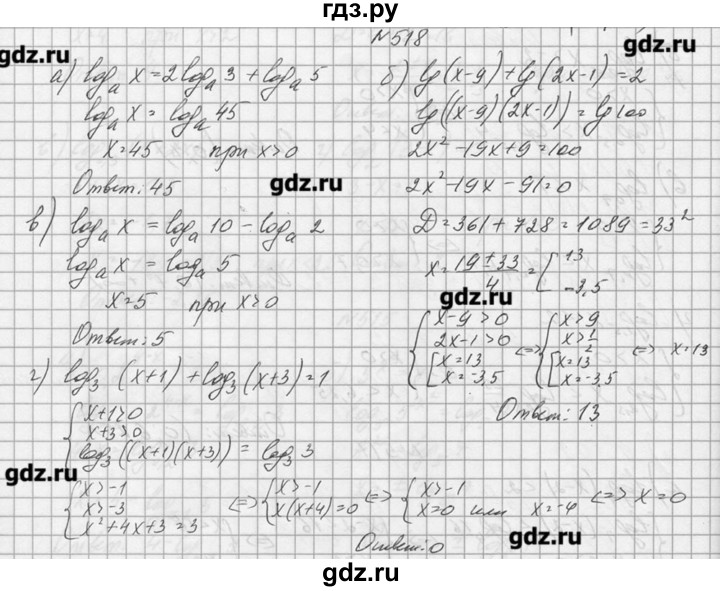 гдз.ру
№518
а) log_a x = 2log_a 3 + log_a 5
log_a x = log_a 45
x=45 при x>0
Ответ: 45
б) lg(x-9)+lg(2x-1)=2
lg((x-9)(2x-1))=lg100
2x²-19x+9=100
2x²-19x-91=0
D=361+728=1089=33²
x=(19±33)/4=[13
-3,5
{x-9>0
2x-1>0
[x=13
x=-3,5
<=> {x>9
x>1/2
[x=13
x=-3,5
<=> x=13
Ответ: 13
в) log_a x = log_a 10 - log_a 2
log_a x = log_a 5
x=5 при x>0
Ответ: 5
г) log_3 (x+1)+log_3 (x+3)=1
{x+1>0
x+3>0
log_3 ((x+1)(x+3)) = log_3 3
{x>-1
x>-3
x²+4x+3=3
<=> {x>-1
x(x+4)=0
<=> {x>-1
x=0 или x=-4
<=> x=0
Ответ: 0
gdz.ru
gdz.ru
gdz.ru
gdz.ru
gdz.ru
gdz.ru
gdz.ru